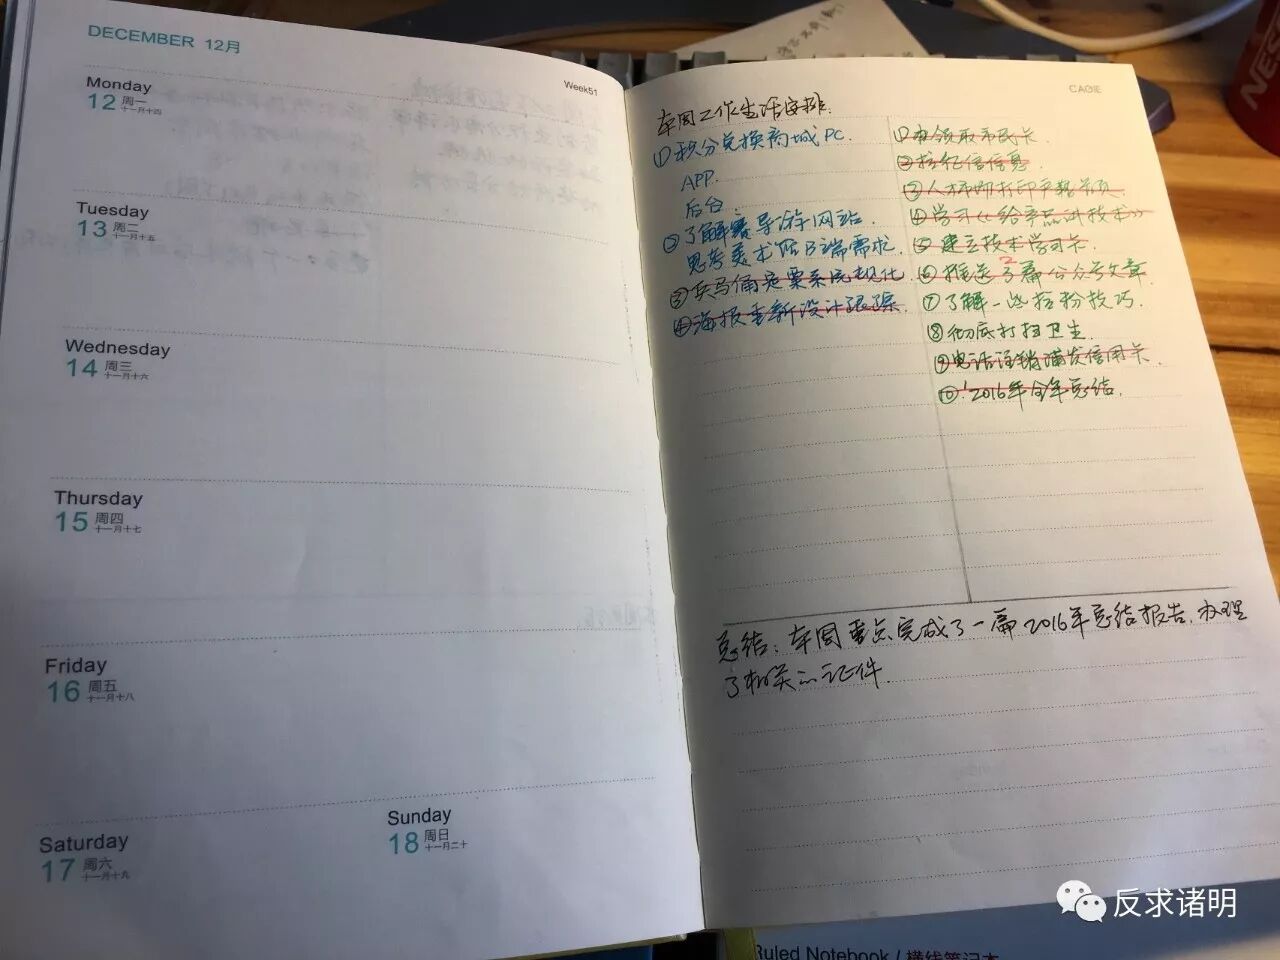 DECEMBER 12月
Week51
Monday
12 周一
十一月十四
Tuesday
13 周二
十一月十五
Wednesday
14 周三
十一月十六
Thursday
15 周四
十一月十七
Friday
16 周五
十一月十八
Saturday
17 周六
十一月十九
Sunday
18 周日
十一月二十
CAGIE
本周工作生活安排.
①积分兑换商城PC.
APP.
后台.
②了解赛导游网站.
思考美术馆B端需求.
③兵马俑是票系统规化.
④海报重新设计跟踪
①申领取市民卡
②按征信信息.
③人才市场打印户籍首页.
④学习《给产品讲技术》
⑤建立技术学习卡.
⑥推送2篇公众号文章.
⑦了解一些捨粉技巧.
⑧彻底打扫卫生.
⑨电话注销浦发信用卡.
⑩2016年全年总结.
总结:本周重点完成了一篇2016年总结报告.办理
了相关证件.
反求诸明
Ruled Notebook / 横线笔记本